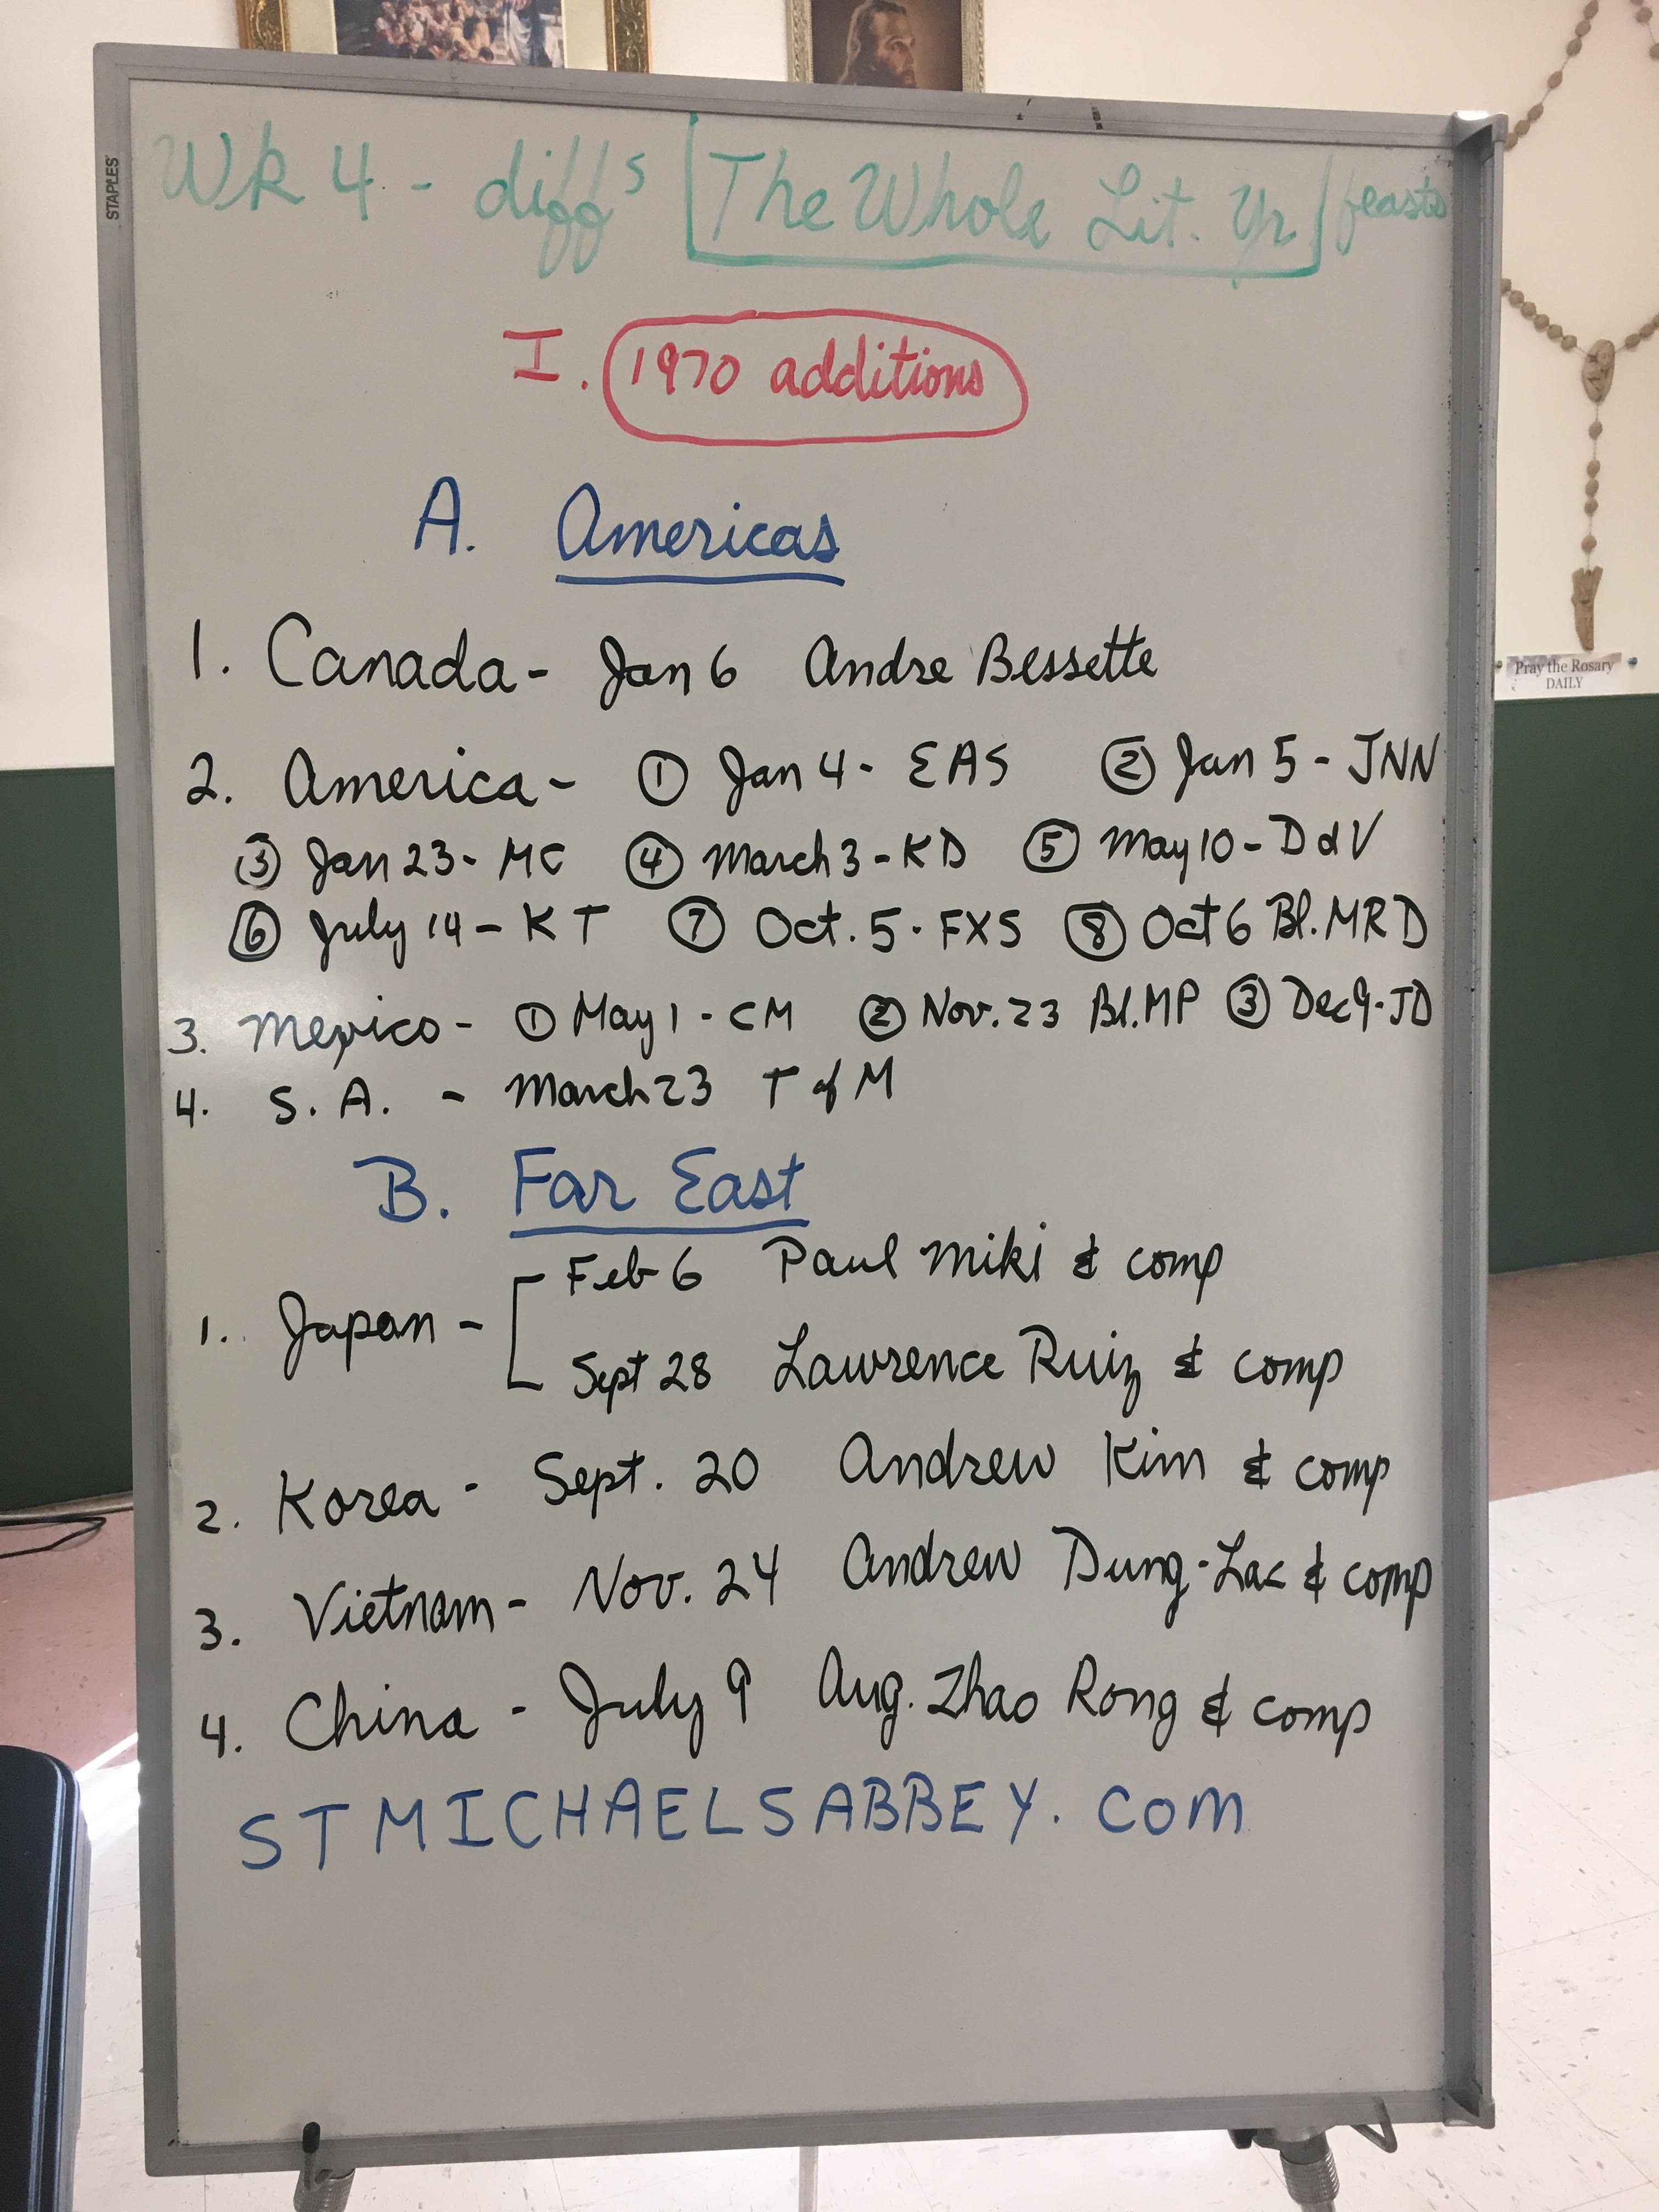 STAPLES
Wk 4 - diffs [The Whole Lit. Yr] feasts
I. 1970 additions
A. Americas
1. Canada - Jan 6 Andre Bessette
2. America - ① Jan 4 - EAS ② Jan 5 - JNN
③ Jan 23 - MC ④ March 3 - KD ⑤ May 10 - DdV
⑥ July 14 - KT ⑦ Oct. 5 - FXS ⑧ Oct 6 Bl. MRD
3. Mexico - ① May 1 - CM ② Nov. 23 Bl. MP ③ Dec 9 - JD
4. S. A. - March 23 T of M
B. Far East
1. Japan - [ Feb 6 Paul Miki & comp
Sept 28 Lawrence Ruiz & comp
2. Korea - Sept. 20 Andrew Kim & comp
3. Vietnam - Nov. 24 Andrew Dung-Lac & comp
4. China - July 9 Aug. Zhao Rong & comp
STMICHAELSABBEY.COM
Pray the Rosary
DAILY